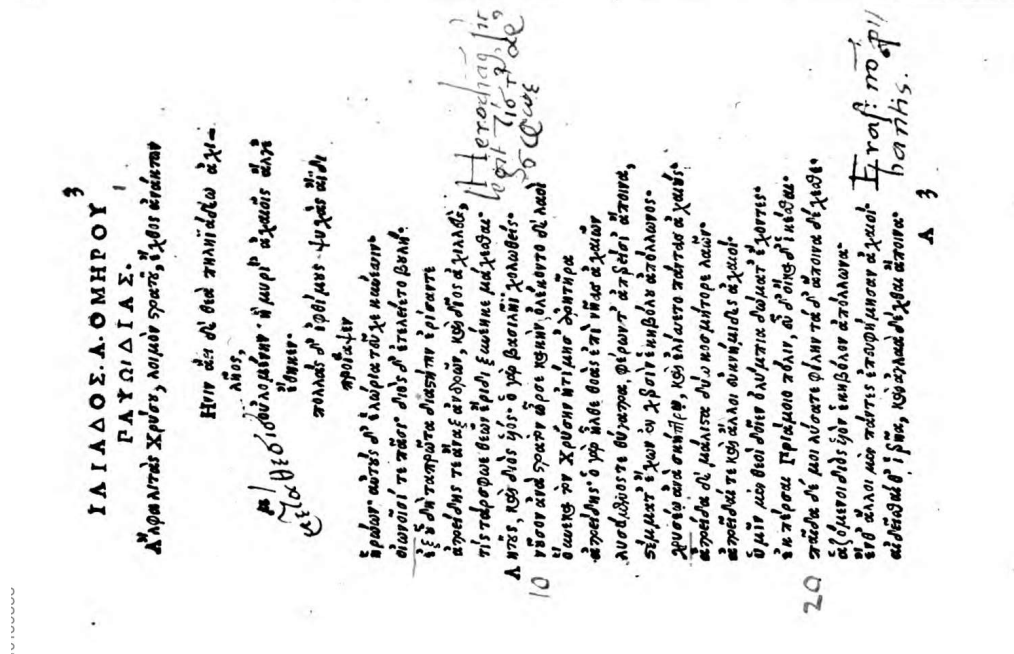 ΙΛΙΑΔΟΣ. Α. ΟΜΗΡΟΥ 3
ΡΑΥΩΙΔΙΑΣ.
Ἄλφα λιτὰς Χρύσου, λοιμὸν στρατοῦ, ἔχθος ἀνάκτων
Ηνιν ἄειδε θεὰ πηληϊάδεω ἀχι-
λῆος,
οὐλομένην· ἣ μυρί' ἀχαιοῖς ἄλγε'
ἔθηκεν·
πολλὰς δ' ἰφθίμους ψυχὰς ἄϊδι
προΐαψεν
ἡρώων· αὐτοὺς δ' ἑλώρια τεῦχε κύνεσσιν·
οἰωνοῖσί τε πᾶσι· διὸς δ' ἐτελείετο βουλή·
ἐξ οὗ δὴ ταπρῶτα διαστήτην ἐρίσαντε
ἀτρείδης τε ἄναξ ἀνδρῶν, καὶ δῖος ἀχιλλεύς,
τίς τάρ σφωε θεῶν ἔριδι ξυνέηκε μάχεσθαι·
Λητοῦς, καὶ διὸς υἱός· ὁ γὰρ βασιλῆϊ χολωθεὶς·
10 νοῦσον ἀνὰ στρατὸν ὦρσε κακὴν, ὀλέκοντο δὲ λαοὶ
οὕνεκα τὸν Χρύσην ἠτίμησ' ἀρητῆρα
ἀτρείδης· ὁ γὰρ ἦλθε θοὰς ἐπὶ νῆας ἀχαιῶν
λυσόμενός τε θύγατρα, φέρων τ' ἀπερείσι' ἄποινα,
στέμματ' ἔχων ἐν χερσὶν ἑκηβόλου ἀπόλλωνος·
χρυσέῳ ἀνὰ σκήπτρῳ, καὶ ἐλίσσετο πάντας ἀχαιούς·
ἀτρείδα δὲ μάλιστα δύω κοσμήτορε λαῶν·
ἀτρεῖδαί τε καὶ ἄλλοι ἐϋκνήμιδες ἀχαιοί·
ὑμῖν μὲν θεοὶ δοῖεν ὀλύμπια δώματ' ἔχοντες·
ἐκπέρσαι Πριάμοιο πόλιν, εὖ δ' οἴκαδ' ἱκέσθαι·
20 παῖδα δέ μοι λύσατε φίλην τὰ δ' ἄποινα δέχεσθε·
ἁζόμενοι διὸς υἱὸν ἑκηβόλον ἀπόλλωνα·
ἔνθ' ἄλλοι μὲν πάντες ἐπευφήμησαν ἀχαιοὶ·
αἰδεῖσθαί θ' ἱερῆα, καὶ ἀγλαὰ δέχθαι ἄποινα·
Α 3